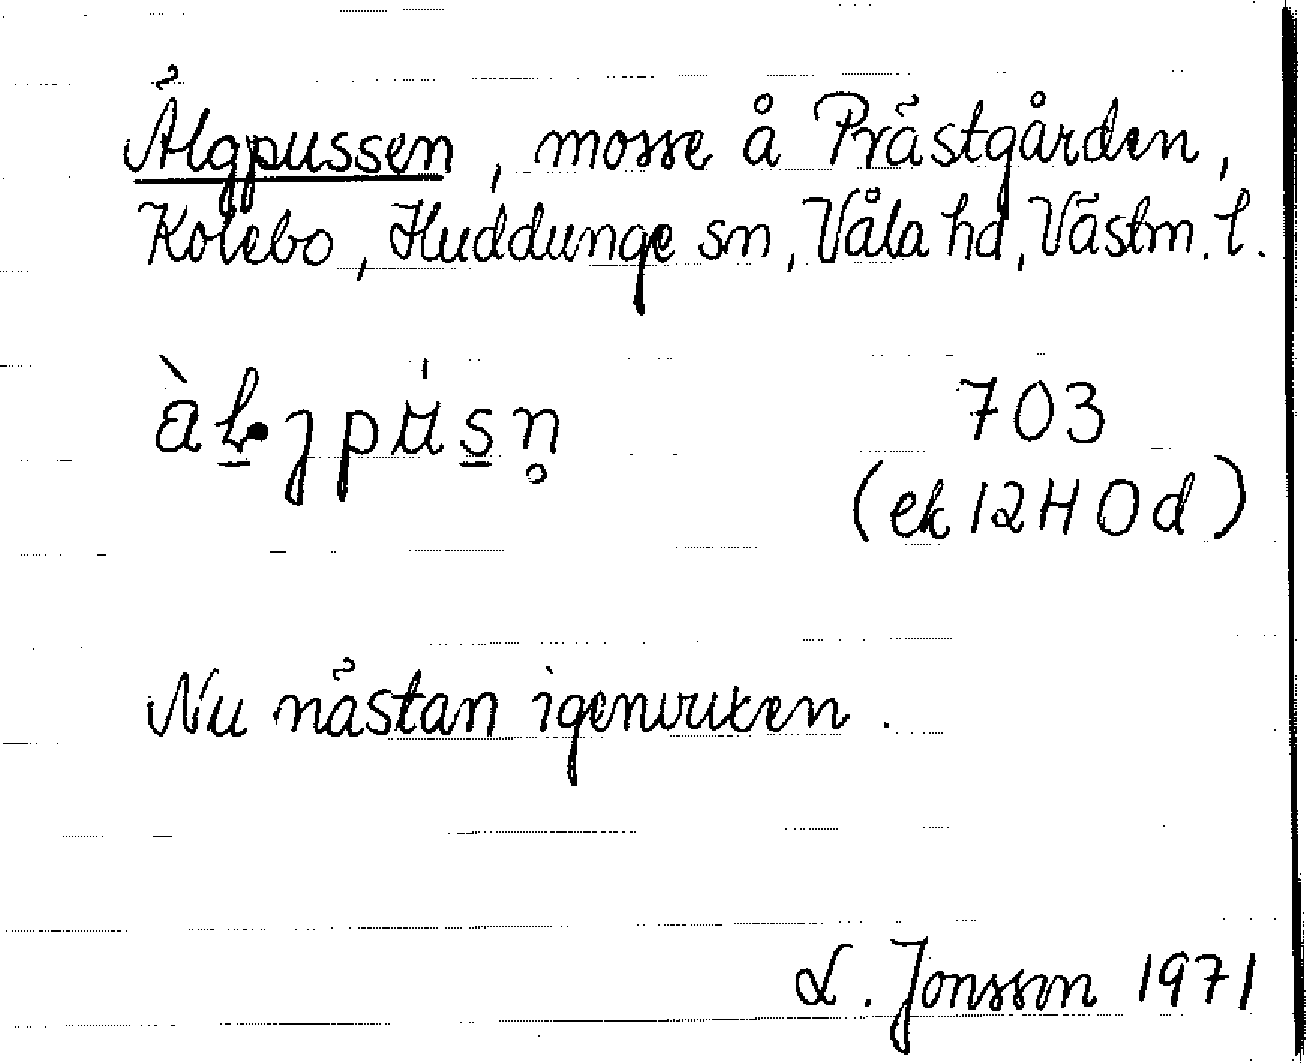 Älgpussen, mosse å Prästgården,
Kolebo, Huddunge sn, Våla hd, Västm. l.
703
(ek 12H 0d)
Nu nästan igenvuxen.
L. Jonsson 1971